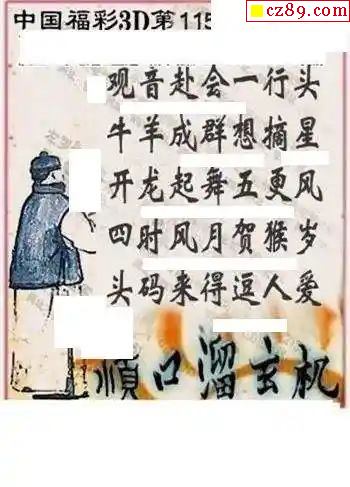 cz89.com
中国福彩3D第115
观音赴会一行头
牛羊成群想摘星
开龙起舞五更风
四时风月贺猴岁
头码来得逗人爱
顺口溜玄机